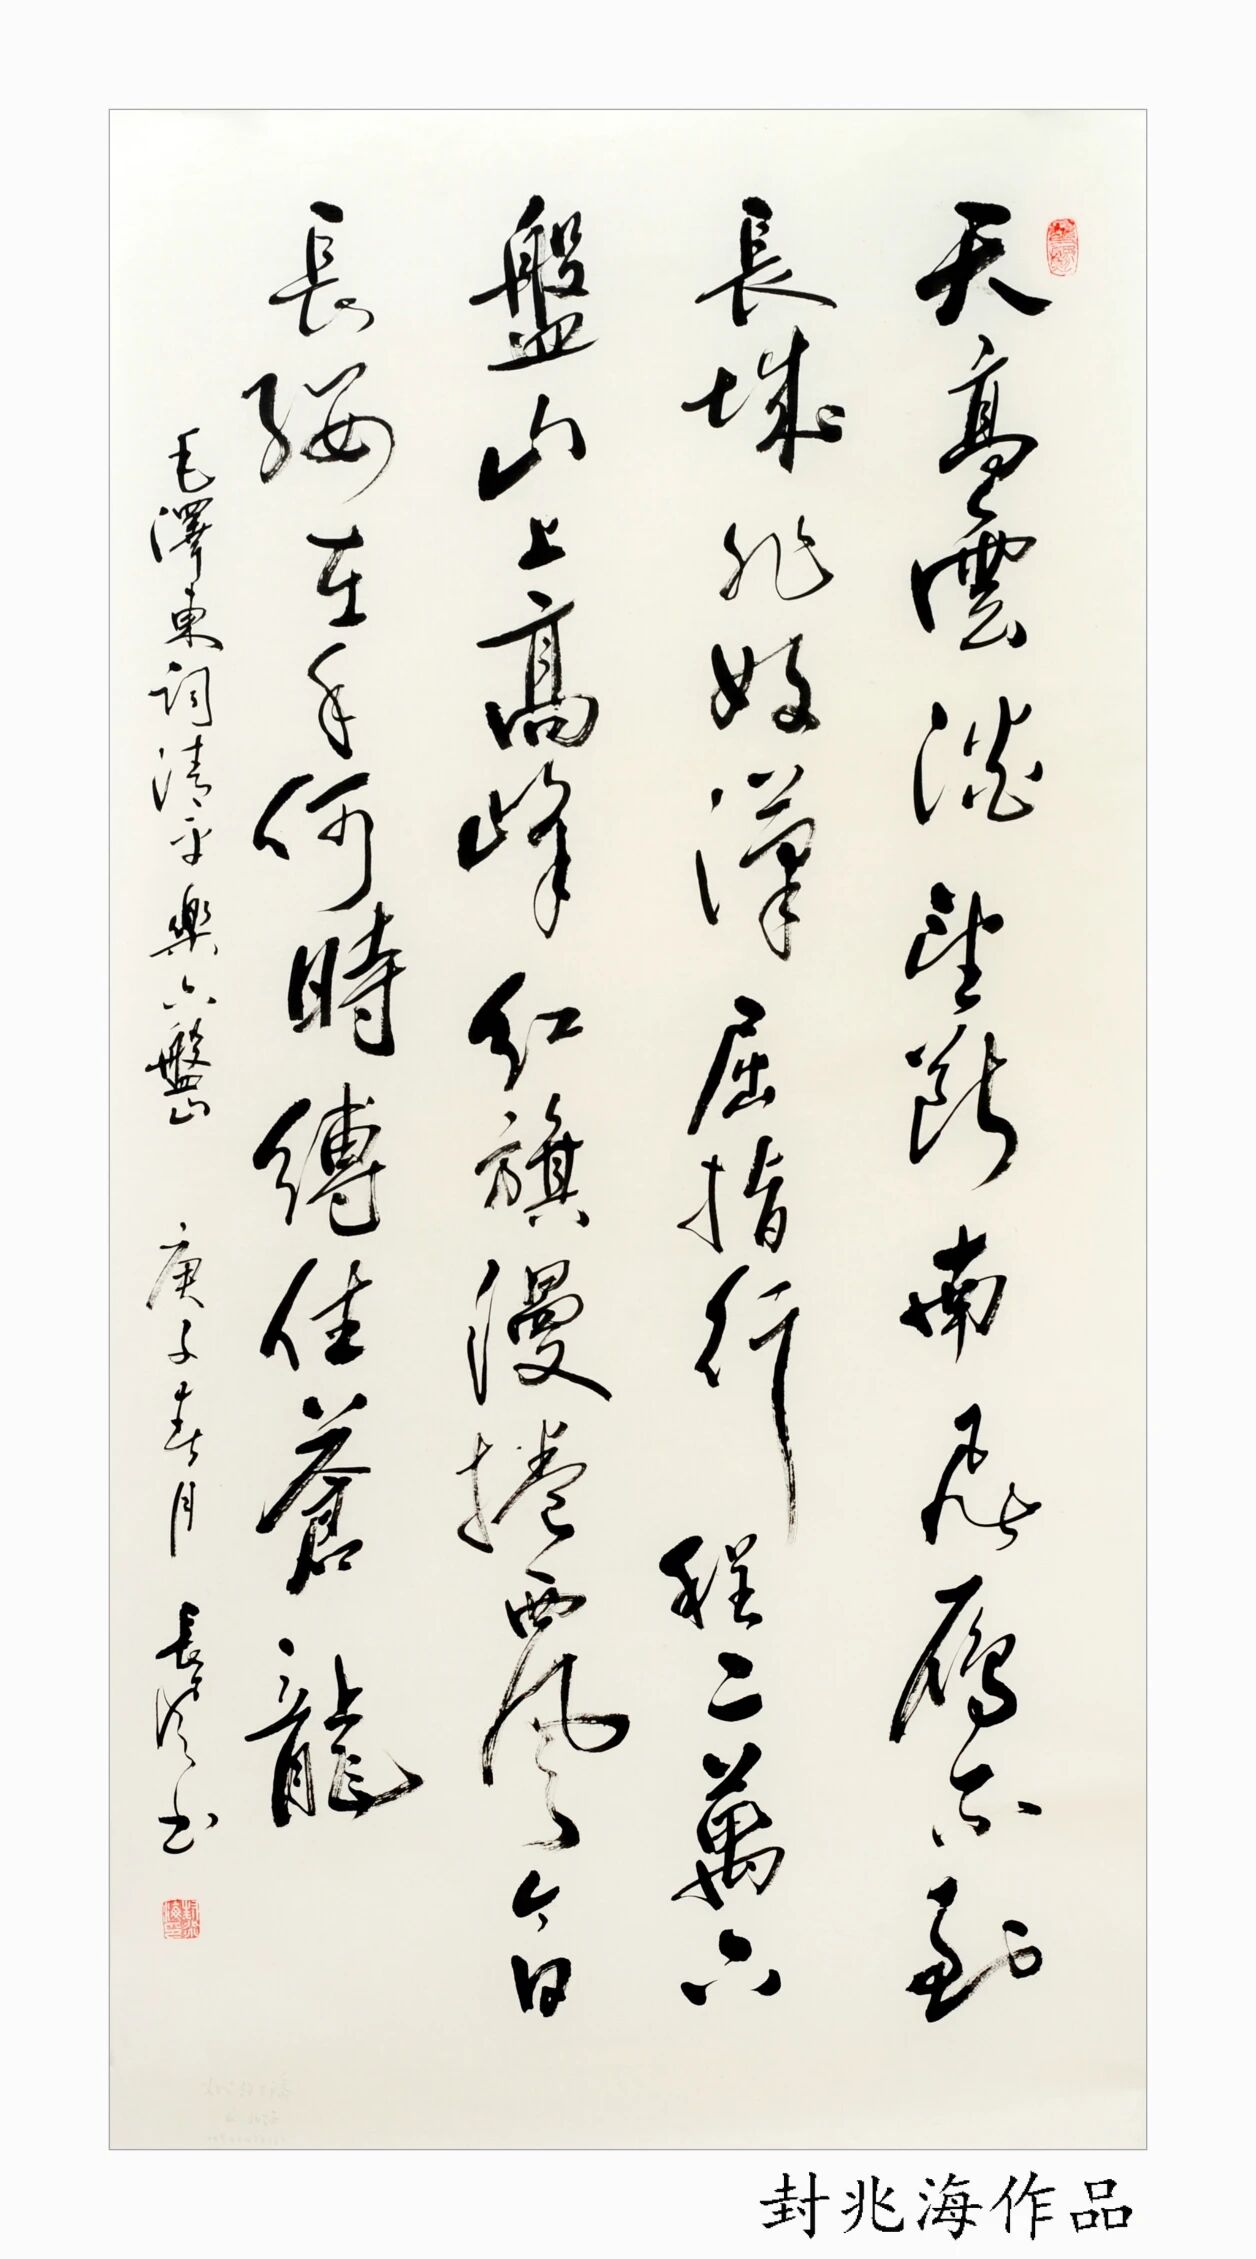 天高雲淡望斷南飛雁不到
長城非好漢屈指行程二萬六
盤山上高峰紅旗漫捲西風今日
長纓在手何時縛住蒼龍
毛澤東詞清平樂六盤山 庚子春月 長 書
封兆海印
封兆海作品